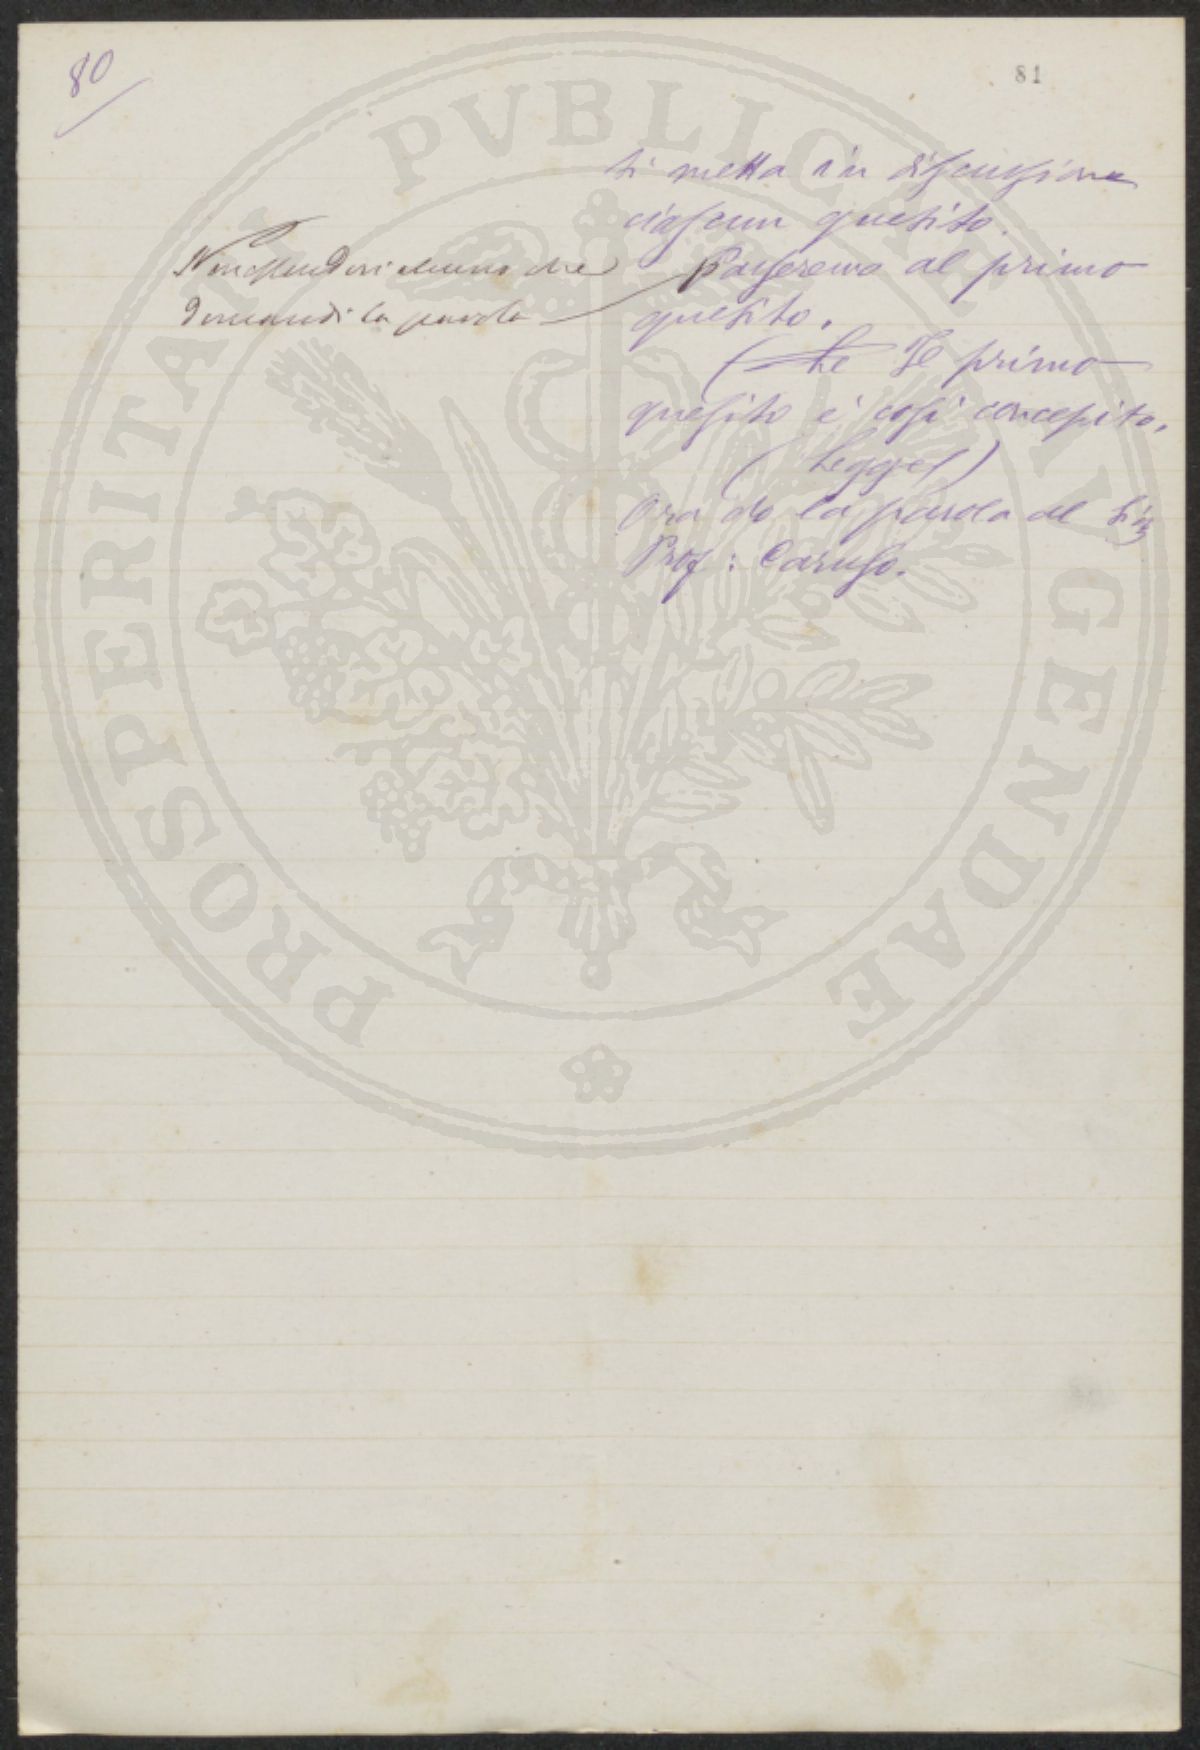 80
81
si metta in discussione
ciascun quesito.
Non essendovi alcuno che
domandi la parola
Passeremo al primo
quesito.
(Le Il primo
quesito è così concepito.
(Legge)
Ora do la parola al Sig
Prof: Caruso.
PROSPERITATI PVBLICAE AVGENDAE